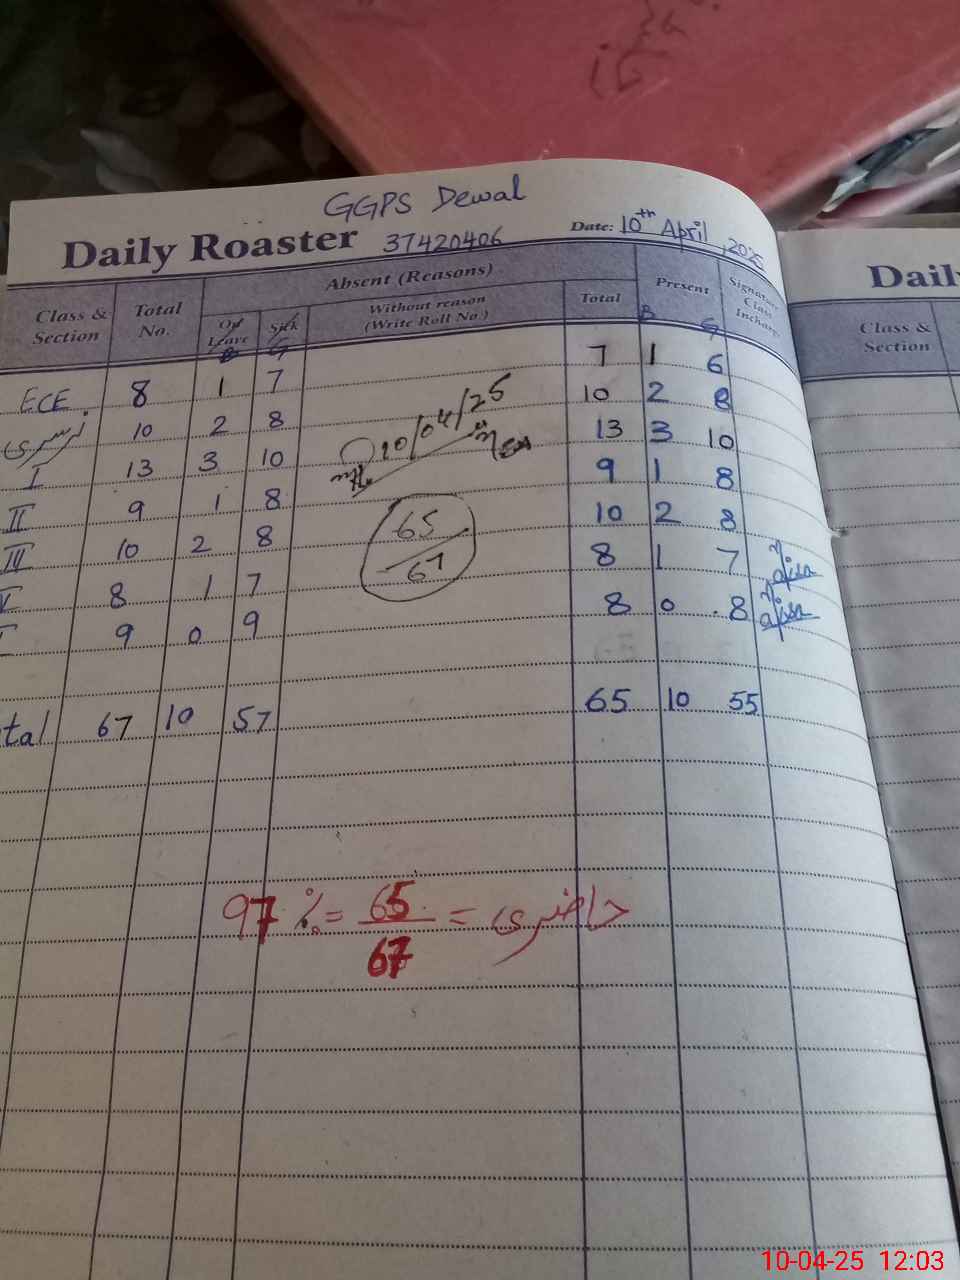 GGPS Dewal
Daily Roaster 37420406 Date: 10th April, 2025
Class & Section Total No. Absent (Reasons) Present Signature Class Incharge
On Leave Sick Without reason (Write Roll No.) Total B G
B G
ECE 8 1 7 7 1 6
نرسری 10 2 8 10 2 8
I 13 3 10 13 3 10
II 9 1 8 9 1 8
III 10 2 8 10 2 8
V 8 1 7 8 1 7
9 0 9 8 0 8
10/04/25
65
67
tal 67 10 57 65 10 55
97 % = 65/67 = حاضری
Dail
Class & Section
10-04-25 12:03